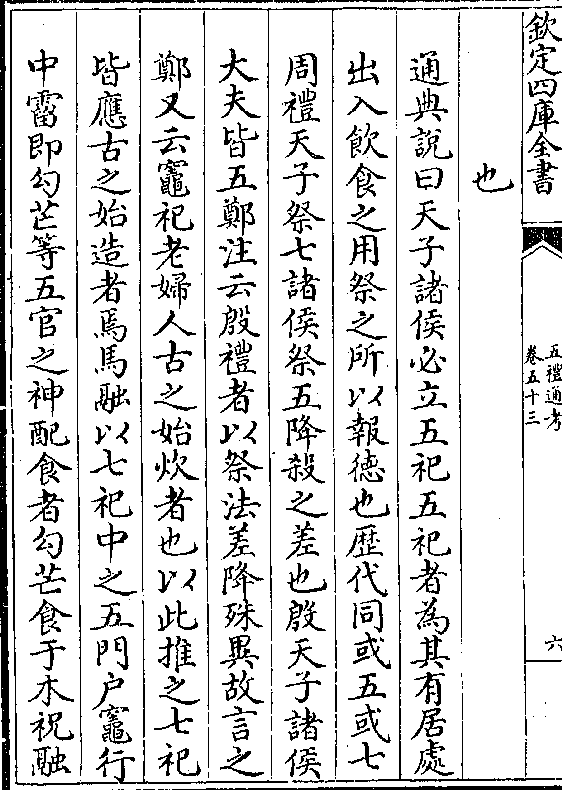 欽定四庫全書
五禮通考
卷五十三
六
也
通典說曰天子諸侯必立五祀五祀者為其有居處
出入飲食之用祭之所以報徳也歴代同或五或七
周禮天子祭七諸侯祭五降殺之差也殷天子諸侯
大夫皆五鄭注云殷禮者以祭法差降殊異故言之
鄭又云竈祀老婦人古之始炊者也以此推之七祀
皆應古之始造者焉馬融以七祀中之五門户竈行
中霤即勾芒等五官之神配食者勾芒食于木祝融